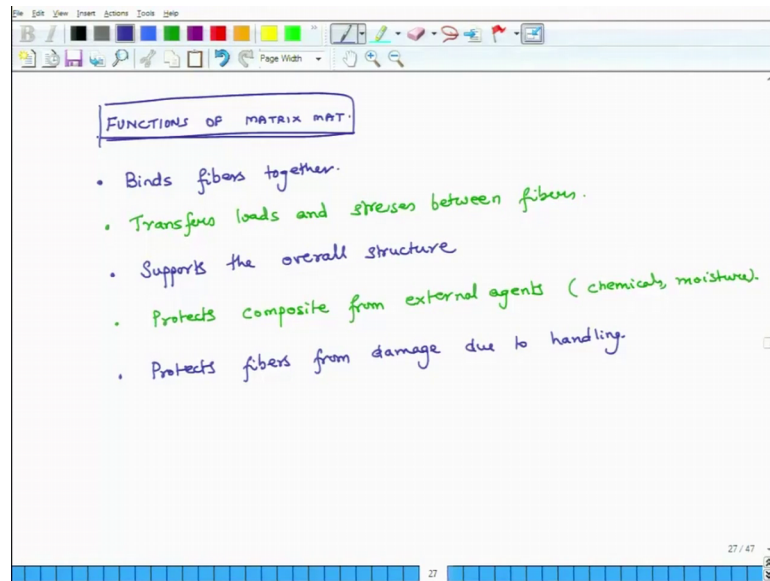 File Edit View Insert Actions Tools Help
B I
Page Width
FUNCTIONS OF MATRIX MAT.
• Binds fibers together.
• Transfers loads and stresses between fibers.
• Supports the overall structure
• Protects composite from external agents (chemicals, moisture).
• Protects fibers from damage due to handling.
27 / 47
27